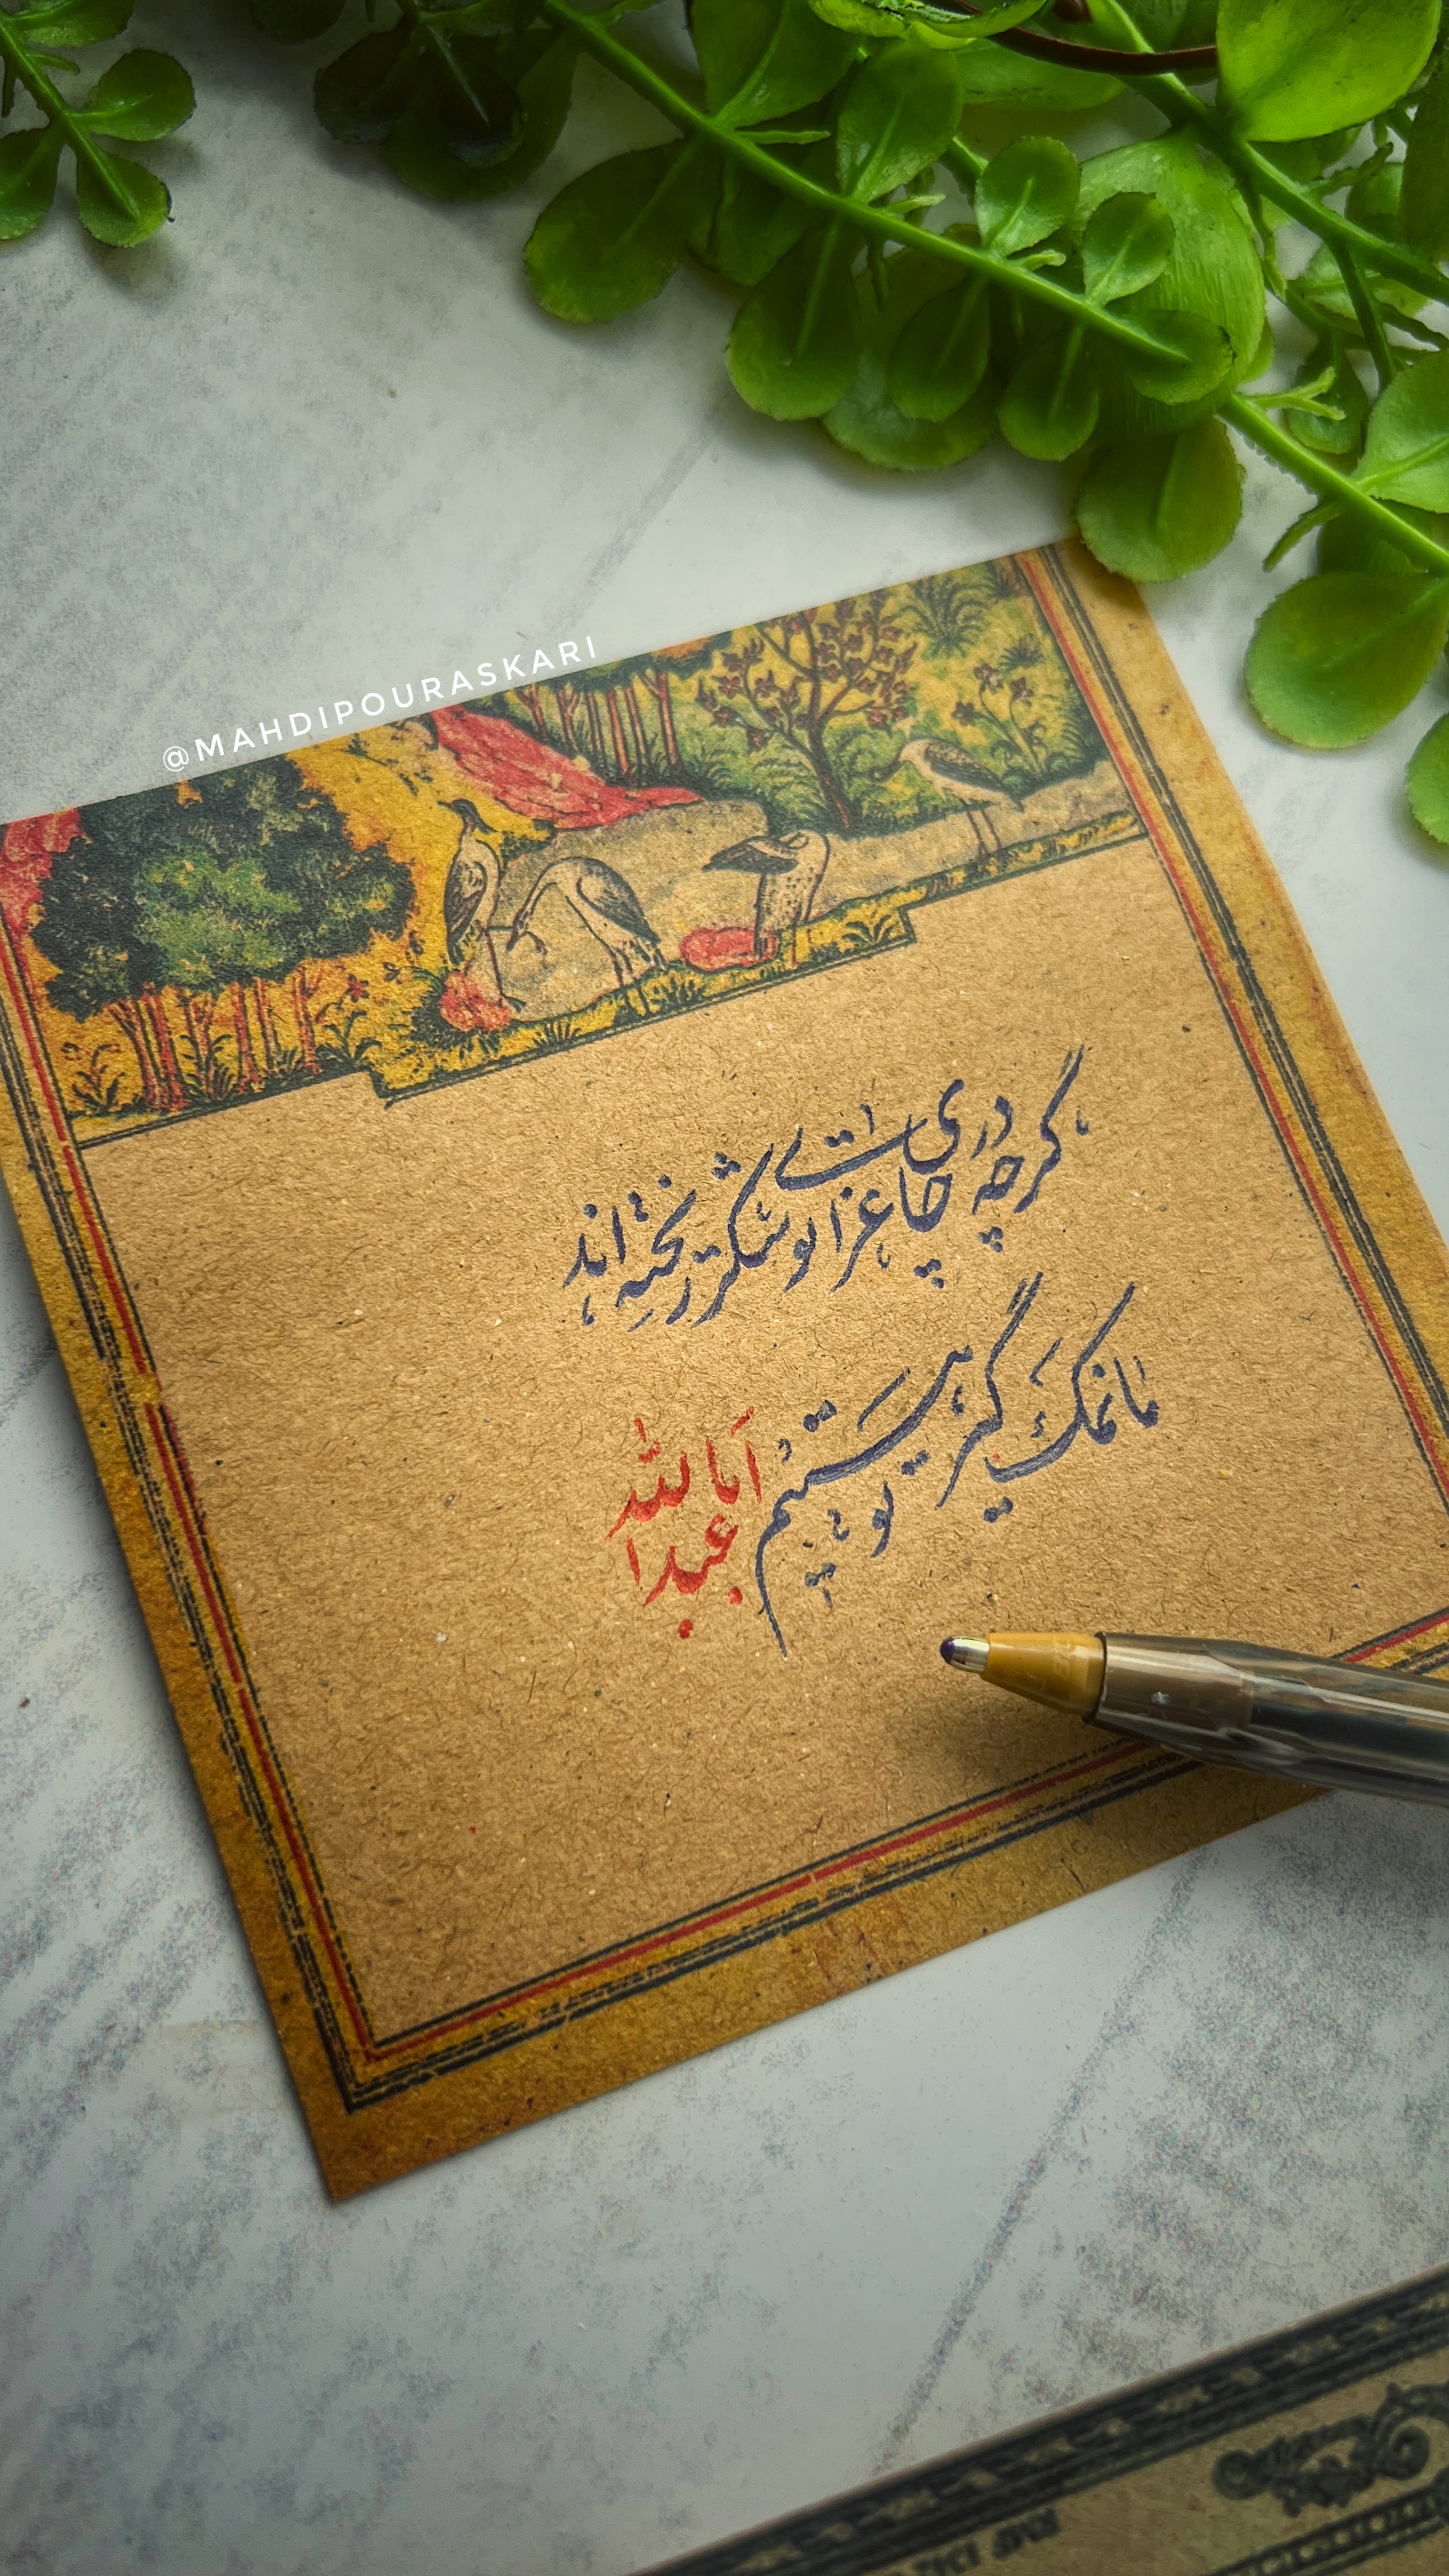 @MAHDIPOURASKARI
گرچه در چای عزای تو شکر ریخته اند
ما نمک گیر تو هستیم اباعبدالله